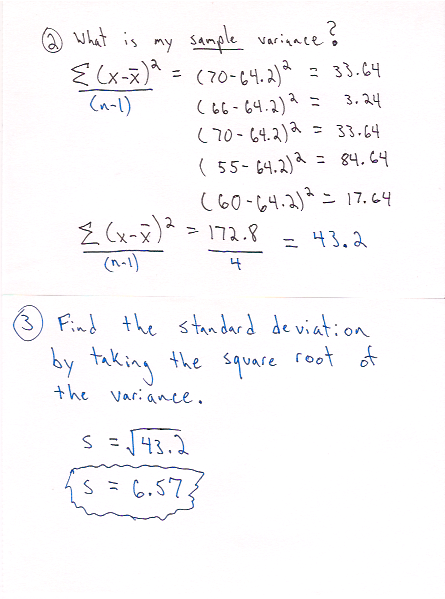 ② What is my sample variance?
Σ(x-x̄)² / (n-1) = (70-64.2)² = 33.64
(66-64.2)² = 3.24
(70-64.2)² = 33.64
(55-64.2)² = 84.64
(60-64.2)² = 17.64
Σ(x-x̄)² / (n-1) = 172.8 / 4 = 43.2
③ Find the standard deviation
by taking the square root of
the variance.
s = √43.2
s = 6.57